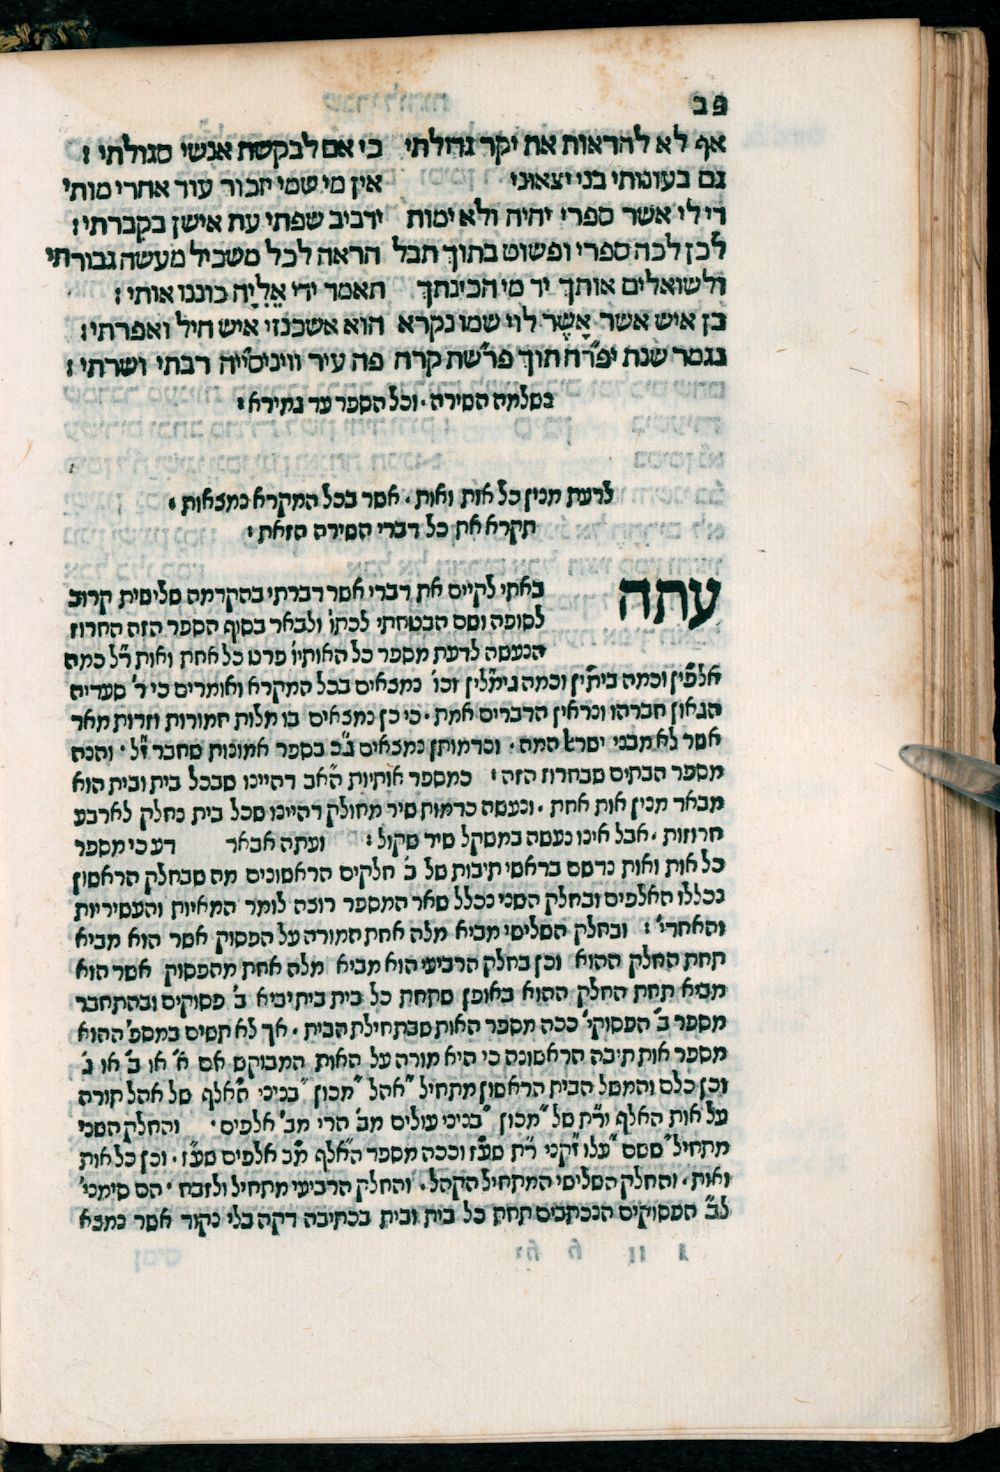 פב
אף לא להראות את יקר גדולתי כי אם לבקשת אנשי סגולתי :
גם בעונותי בני יצאוני אין מי שמי יזכור עוד אחרי מותי
די לי אשר ספרי יחיה ולא ימות ידביב שפתי עת אישן בקברתי :
לכן לכה ספרי ופשוט בתוך תבל הראה לכל משכיל מעשה גבורתי
ולשואלים אותך יד מי הכינתך תאמר ידי אֵלִיָּה כוננו אותי :
בן איש אשר אָשֶׁר לוי שמו נקרא הוא אשכנזי איש חיל ואפרתי :
נגמר שנת יפ״רח תוך פרשת קרח פה עיר וויניסייה רבתי ושרתי :
נשלמה השירה · וכל הספר עד גמירא :
לדעת מנין כל אות ואות · אשר בכל המקרא נמצאות ,
תקרא את כל דברי השירה הזאת :
עתה באתי לקיים את דברי אשר דברתי בהקדמה שלישית קרוב
לסופה ושם הבטחתי לכתו׳ ולבאר בסוף הספר הזה החרוז
הנעשה לדעת מספר כל האותיו׳ פרט כל אחת ואות ר״ל כמה
אלפי״ן וכמה ביתי״ן וכמה גימלי״ן וכו׳ נמצאים בכל המקרא ואומרים כי ר׳ סעדיה
הגאון חברהו ונראין הדברים אמת · כי כן נמצאים בו מלות חמורות וזרות מאד
אשר לא מבני ישראל המה · וכדמותן נמצאים ג״כ בספר אמונות שחבר ז״ל · והנה
מספר הבתים שבחרוז הזה : כמספר אותיות הא״ב דהיינו שבכל בית ובית הוא
מבאר מנין אות אחת · ונעשה כדמות שיר מחולק דהיינו שכל בית נחלק לארבע
חרוזות · אבל אינו נעשה במשקל שיר שקול : ועתה אבאר דע כי מספר
כל אות ואות נרשם בראשי תיבות של ב׳ חלקים הראשונים מה שבחלק הראשון
נכללו האלפים ובחלק השני נכלל שאר המספר רוצה לומר המאיות והעשיריות
והאחדי׳ : ובחלק השלישי מביא מלה אחת המורה על הפסוק אשר הוא מביא
תחת החלק ההוא וכן בחלק הרביעי הוא מביא מלה אחת מהפסוק אשר הוא
מביא תחת החלק ההוא באופן שתחת כל בית בית יביא ב׳ פסוקים ובהתחבר
מספר ב׳ הפסוקי׳ ככה מספר האות שבתחילת הבית · אך לא תשים במספ׳ ההוא
מספר אות תיבה הראשונה כי היא מורה על האות המבוקש אם א׳ או ב׳ או ג׳
וכן כלם והמשל הבית הראשון מתחיל ״אהל ״מכון ״בניני ה״אלף של אהל תורה
על אות האלף ור״ת של ״מכון ״בניני עולים מ״ב הרי מ״ב אלפים · והחלק השני
מתחיל ״ששם ״עלו ״זקני ר״ת שע״ז וככה מספר הא״לף מ״ב אלפים שע״ז · וכן כל אות
ואות · והחלק השלישי המתחיל הקהל · והחלק הרביעי מתחיל ולזבח · הם סימני׳
לב׳ הפסוקים הנכתבים תחת כל בית ובית בכתיבה דקה בלי נקוד אשר נמצא